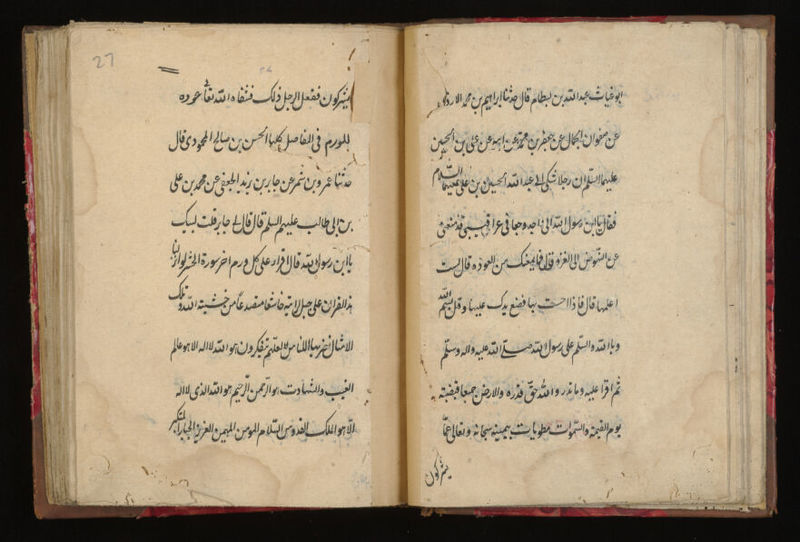 ابو غياث عبد الله بن بسطام قال حدثنا ابراهيم بن محمد الاودى
عن صفوان الجمال عن جعفر بن محمد عن ابيه عن على بن الحسين
عليهما السلم ان رجلا شكى الى ابى عبد الله الحسين بن على عليهما السلام
فقال يا ابن رسول الله انى اجد وجعا فى عراقيبى قد منعنى
عن النهوض الى الغزو قال فما يمنعك من العوذه قال لست
اعلمها قال فاذا احسست بها فضع يدك عليها وقل بسم الله
وبالله والسلم على رسول الله صلى الله عليه واله وسلم
ثم اقرا عليه وما قدروا الله حق قدره والارض جميعا قبضته
يوم القيمة والسموات مطويات بيمينه سبحانه وتعالى عما
يشركون
27
يشركون ففعل الرجل ذلك فشفاه الله تعالى عوده
للورم فى المفاصل كلها الحسن بن صالح المحمودى قال
حدثنا عمرو بن شمر عن جابر بن يزيد الجعفى عن محمد بن على
بن ابى طالب عليهم السلم قال قال لى جابر قلت لبيك
يا ابن رسول الله قال اقرا على كل ورم اخر سورة الحشر لو انزلنا
هذا القران على جبل لرايته خاشعا متصدعا من خشية الله وتلك
الامثال نضربها للناس لعلهم يتفكرون هو الله لا اله الا هو عالم
الغيب والشهادت هو الرحمن الرحيم هو الله الذى لا اله
الا هو الملك القدوس السلام المومن المهيمن العزيز الجبار المتكبر